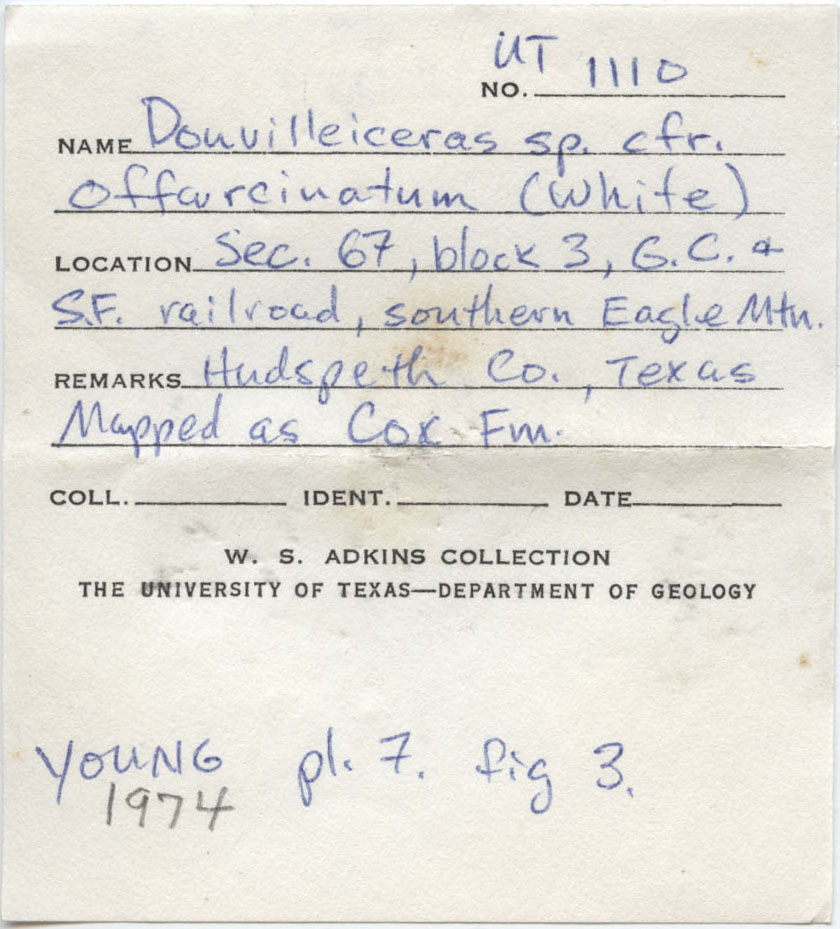 UT
NO. 1110
NAME Douvilleiceras sp. cfr.
offarcinatum (White)
LOCATION Sec. 67, block 3, G.C. &
S.F. railroad, southern Eagle Mtn.
REMARKS Hudspeth Co., Texas
Mapped as Cox Fm.
COLL. IDENT. DATE
W. S. ADKINS COLLECTION
THE UNIVERSITY OF TEXAS—DEPARTMENT OF GEOLOGY
YOUNG pl. 7. fig 3.
1974